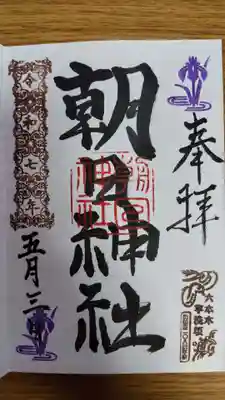 奉拝
朝日神社
令和七年
五月三日
六本木